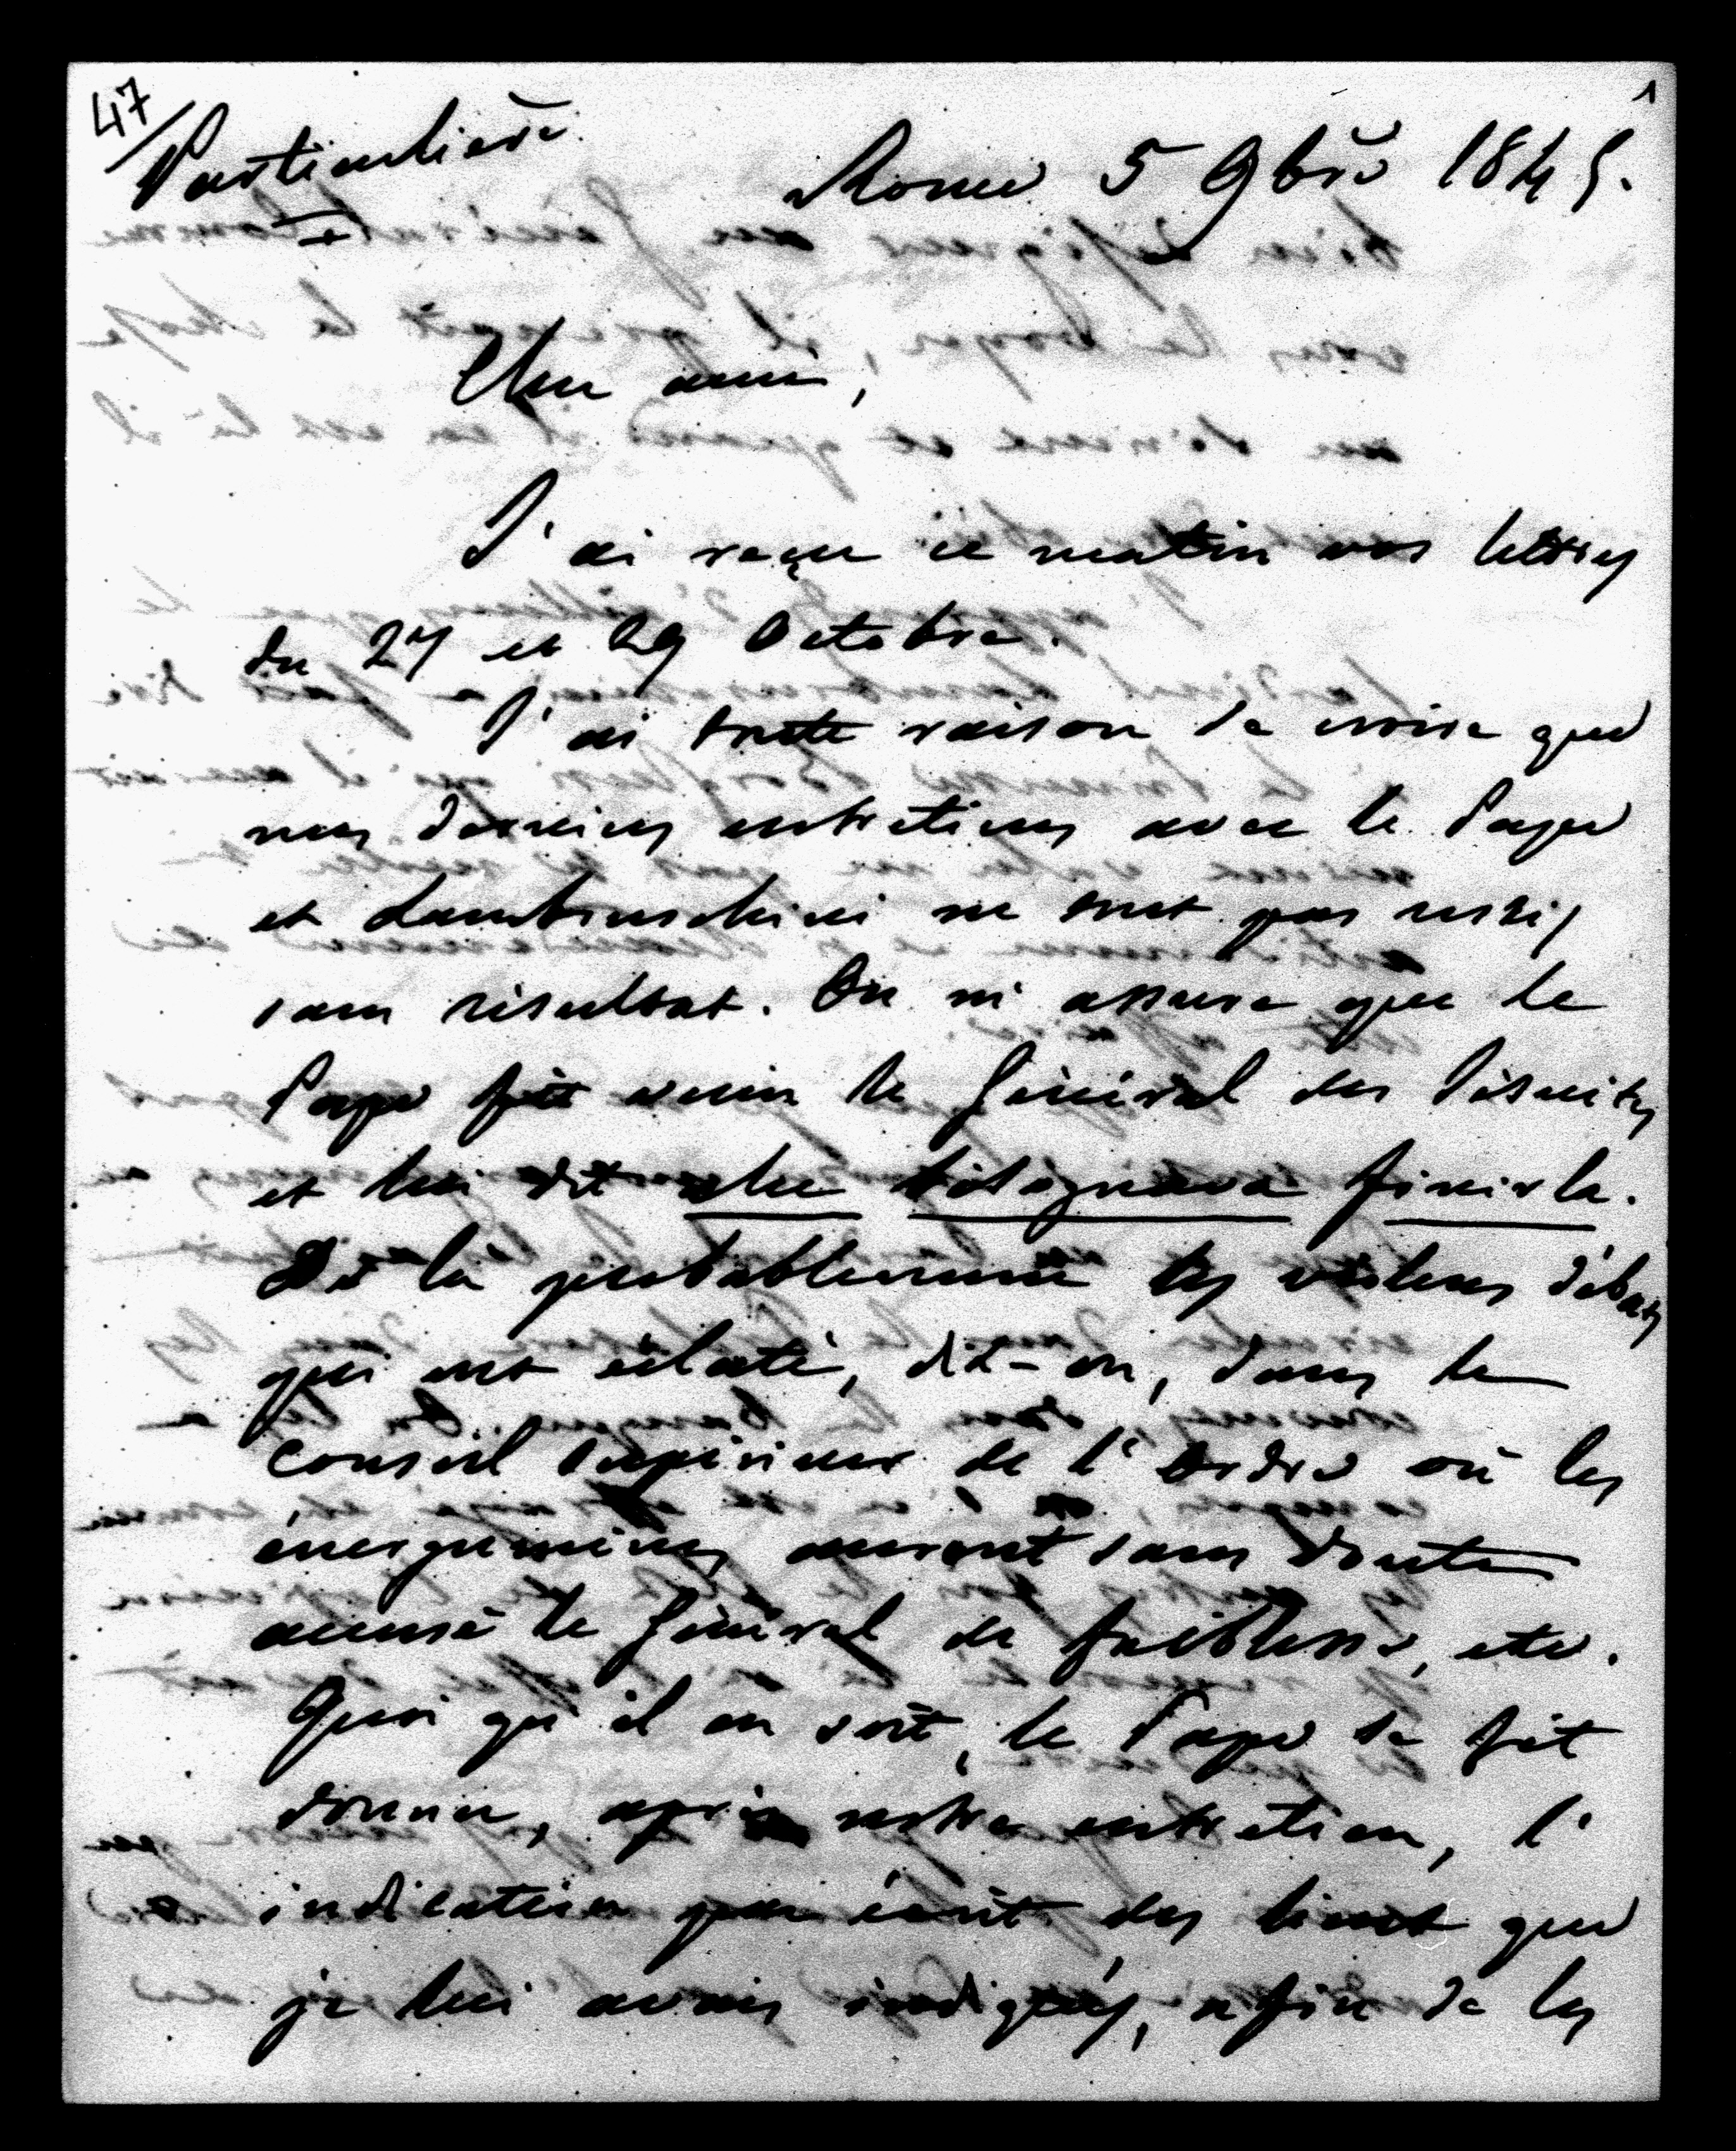 47
1
Particulière
Rome 5 9bre 1845.
Cher ami,
J'ai reçu ce matin vos lettres
du 27 et 29 Octobre.
J'ai toute raison de croire que
nos derniers entretiens avec le Pape
et Lambruschini ne sont pas restés
sans résultat. On m'assure que le
Pape fit venir le Général des Jésuites
et lui dit che bisognava finirla.
De là probablement les violens débats
qui ont éclaté, dit-on, dans le
Conseil supérieur de l'Ordre où les
énergumènes auront sans doute
accusé le Général de faiblesse, etc.
Quoi qu'il en soit, le Pape se fit
donner, après notre entretien, l'
indication par écrit des lieux que
je lui avais indiqués, afin de les